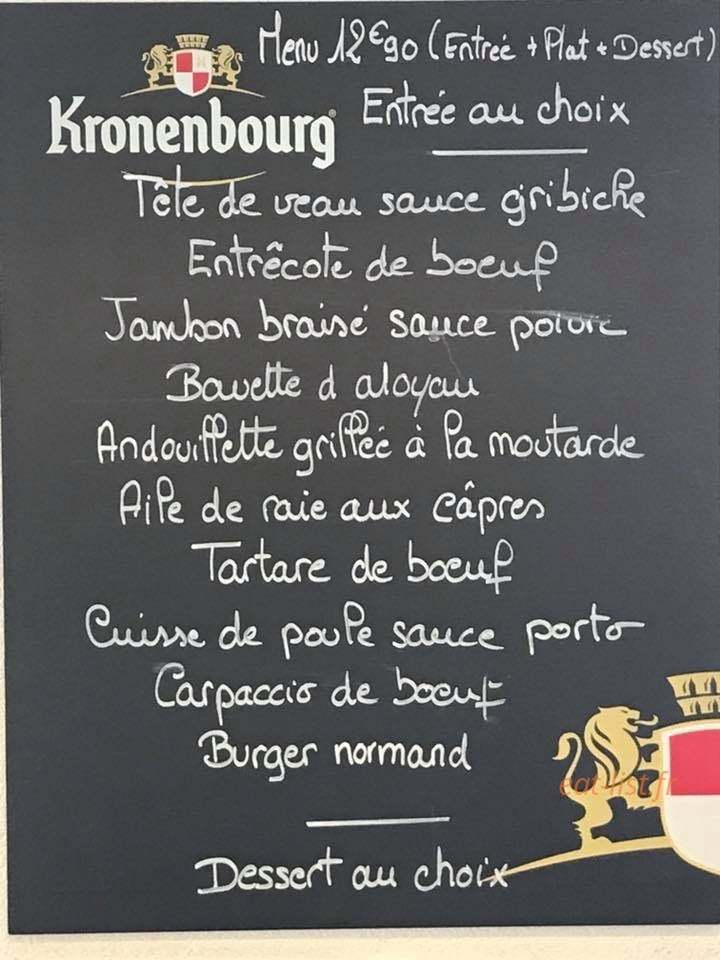 Menu 12€90 (Entrée + Plat + Dessert)
Kronenbourg
Entrée au choix
Tête de veau sauce gribiche
Entrêcote de boeuf
Jambon braisé sauce poivre
Bavette d aloyau
Andouillette grillée à la moutarde
Aile de raie aux câpres
Tartare de boeuf
Cuisse de poule sauce porto
Carpaccio de boeuf
Burger normand
eat-list.fr
Dessert au choix